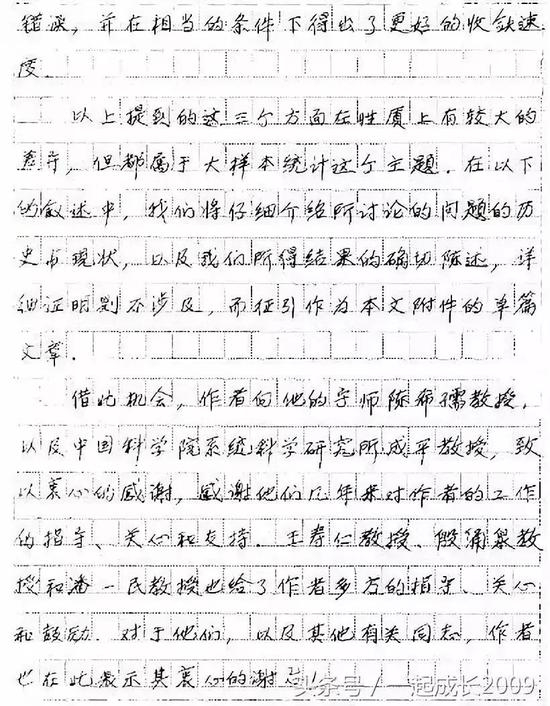 错误，并在相当的条件下得出了更好的收敛速
度．
以上提到的这三个方面在性质上有较大的
差异，但都属于大样本统计这个主题．在以下
的叙述中，我们将仔细介绍所讨论的问题的历
史与现状，以及我们所得结果的确切陈述，详
细证明则不涉及，而征引作为本文附件的单篇
文章．
借此机会，作者向他的导师陈希孺教授，
以及中国科学院系统科学研究所成平教授，致
以衷心的感谢，感谢他们几年来对作者的工作
的指导、关心和支持．王寿仁教授、殷涌泉教
授和潘一民教授也给了作者多方的指导、关心
和鼓励．对于他们，以及其他有关同志，作者
也在此表示其衷心的谢意！
头条号 / 一起成长2009